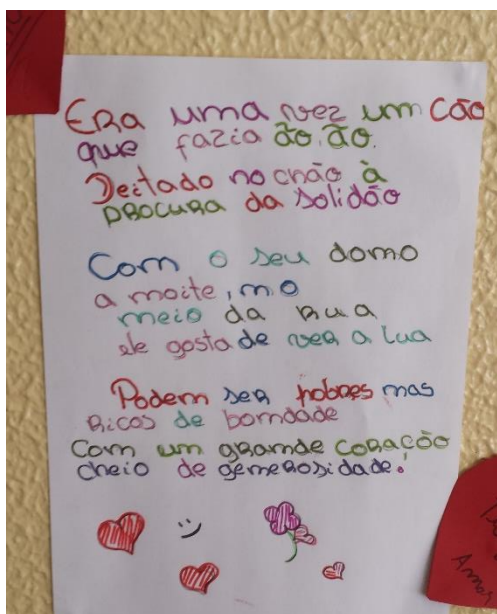 Era uma vez um cão
que fazia ão, ão.
Deitado no chão à
procura da solidão
Com o seu domo
a noite, no
meio da rua
ele gosta de ver a lua
Podem ser pobres mas
Ricos de bondade
Com um grande coração
cheio de generosidade.
Amor